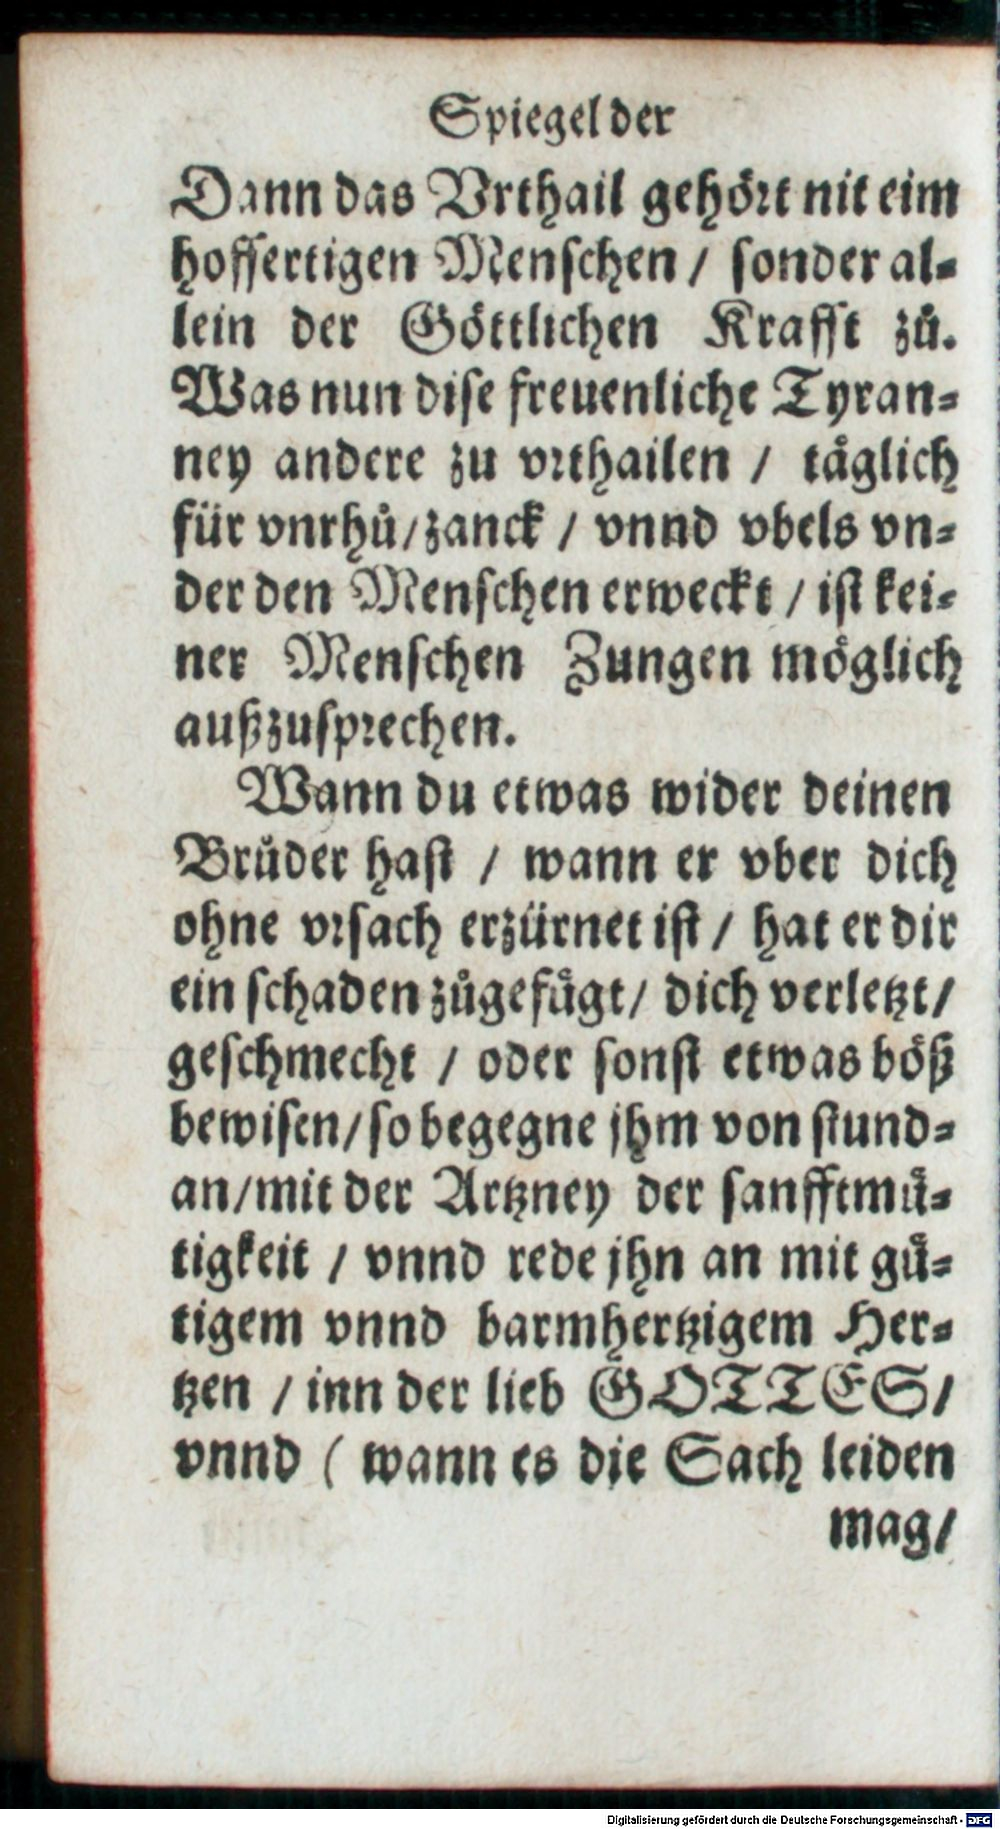 Spiegel der
Dann das Vrthail gehört nit eim
hoffertigen Menschen / sonder al-
lein der Göttlichen Krafft zů.
Was nun dise freuenliche Tyran-
ney andere zu vrthailen / täglich
für vnrhů / zanck / vnnd vbels vn-
der den Menschen erweckt / ist kei-
ner Menschen Zungen möglich
außzusprechen.
Wann du etwas wider deinen
Brůder hast / wann er vber dich
ohne vrsach erzürnet ist / hat er dir
ein schaden zůgefügt / dich verletzt /
geschmecht / oder sonst etwas böß
bewisen / so begegne jhm von stund-
an / mit der Artzney der sanfftmü-
tigkeit / vnnd rede jhn an mit gü-
tigem vnnd barmhertzigem Her-
tzen / inn der lieb GOTTES /
vnnd ( wann es die Sach leiden
mag /
Digitalisierung gefördert durch die Deutsche Forschungsgemeinschaft - DFG